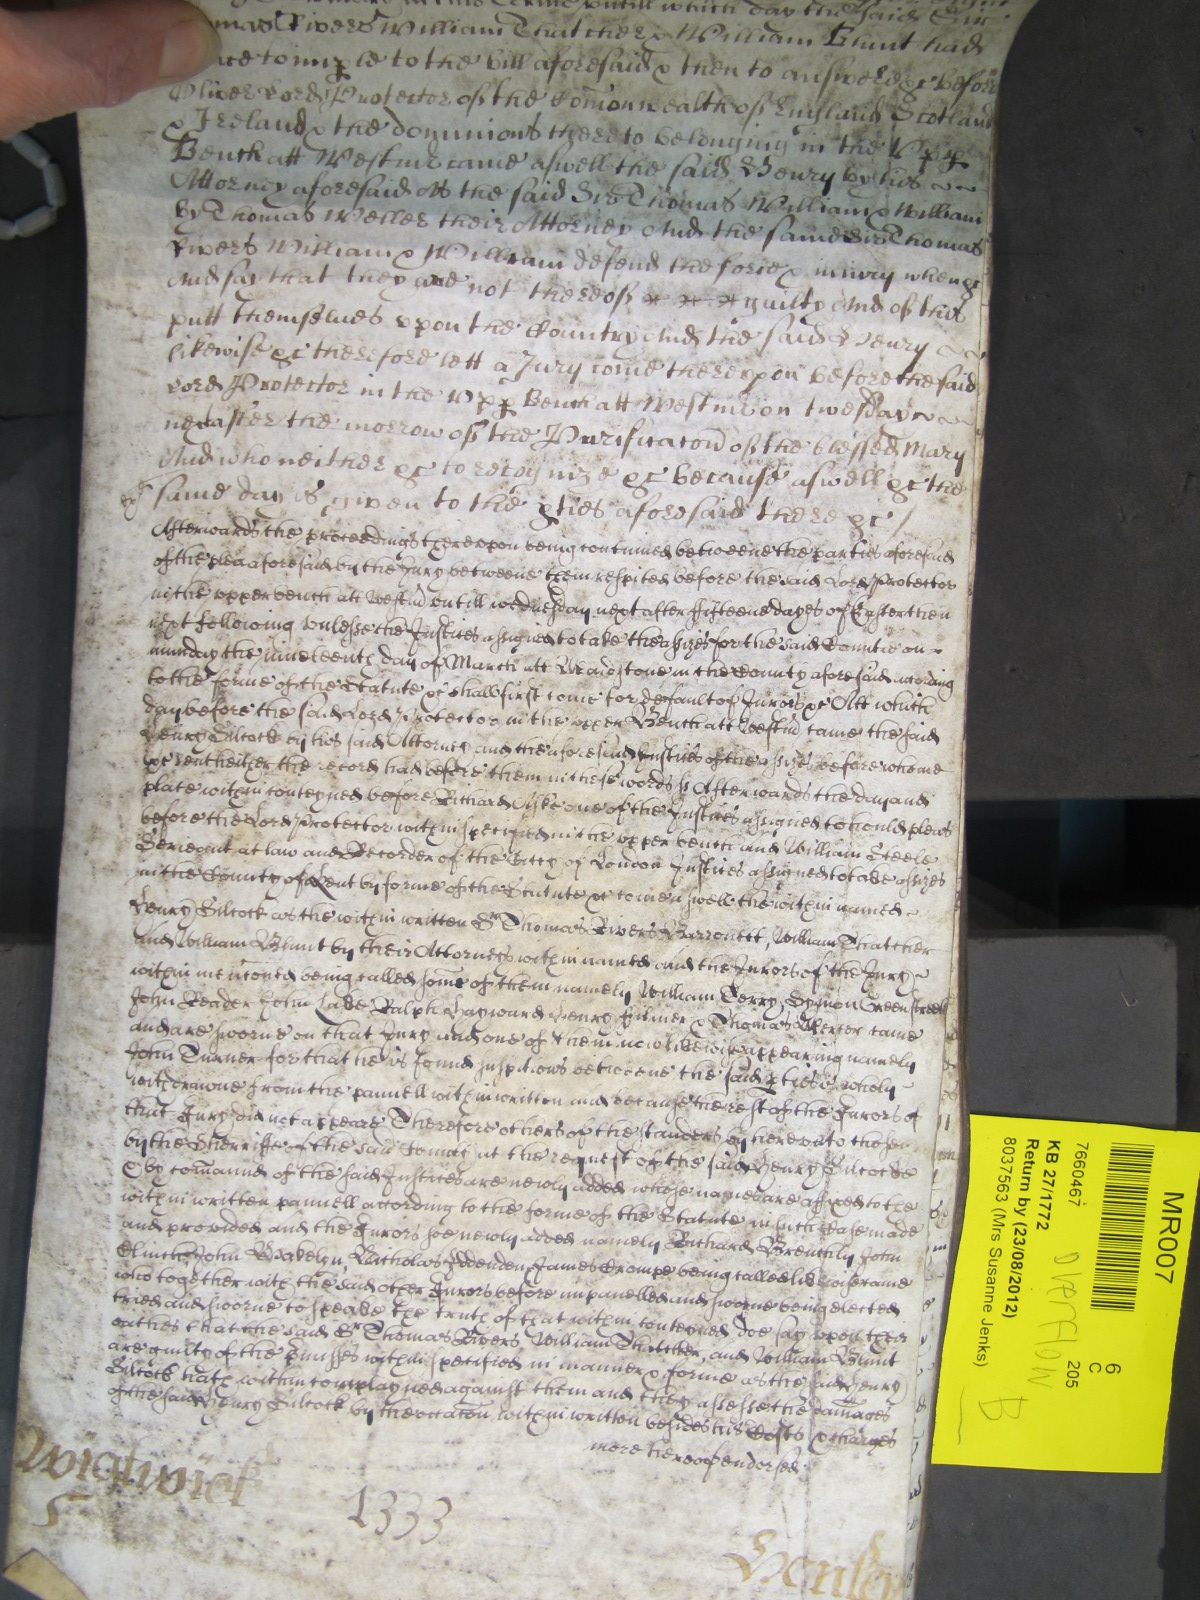 in this Terme untill which day the said Sir
mas Rivers William Thatcher & William Blunt had
nce to imple to the bill aforesaid & then to answere &c before
Oliver Lord Protector of the Comonwealth of England Scotland
& Ireland & the dominions thereto belonging in the Upp
Bench att Westmr came aswell the said Henry by his
Attorney aforesaid As the said Sir Thomas William & William
by Thomas Weller their Attorney And the same Sir Thomas
Rivers William & William defend the force & iniury when &c
And say that they are not thereof guilty And of this
putt themselves upon the Country And the said Henry
likewise &c therefore lett a Jury come thereupon before the said
Lord Protector in the Upp Bench att Westm on twesday
next after the morrow of the Purificacon of the blessed Mary
And who neither &c to recognize &c because aswell &c the
same day is given to the pties aforesaid there &c
Afterwards the proceedings thereupon being continued betweene the parties aforesaid
of the plea aforesaid by the Jury betweene them respited before the said Lord Protector
in the upper bench att Westm untill wednesday next after fifteene dayes of Easter then
next following unlesse the Justices assigned to take the assizes for the said Countie on
munday the nineteenth day of March att Maidstone in the County aforesaid according
to the forme of the Statute &c shall first come for default of Jurors &c Att which
day before the said Lord Protector in the upper Bench att Westm came the said
Henry Silcock by his said Attorney and the aforesaid Justices of the assizes before whome
&c sent hether the record had before them in these words ss Afterwards the day and
place within conteyned before Richard Aske one of the Justices assigned to hould pleas
before the Lord Protector within specified in the upper bench and William Steele
Serieant at law and Recorder of the Citty of London Justices assigned to take assizes
in the County of Kent by forme of the Statute &c come aswell the within named
Henry Silcock as the within written Sr Thomas Rivers Barronett, William Thatcher
and William Blunt by their Attorneys within named and the Jurors of the Jury
within mencioned being called some of them namely William Terry Symon Greenstreet
John Reader John Lake Ralph Hayward Henry Filmer & Thomas came
and are sworne on that Jury and one of them now likewise appearing namely
John Turner for that he is found suspitious betweene the said pties is wholy
withdrawne from the pannell within written and because the rest of the Jurors of
that Jury did not appeare Therefore others of the standers by hereunto chosen
by the Sherriffe of the said County at the request of the said Henry Silcocke
& by comaund of the said Justices are newly added whose names are affixed to the
within written pannell according to the forme of the Statute in such case made
and provided and the Jurors soe newly added namely Richard Brenchly John
Clinch John Wakelyn, Nicholas Iddenden James Crompe being called likewise came
who together with the said other Jurors before impanelled and sworne being elected
tried and sworne to speake the truth of that within conteyned doe say upon their
oathes that the said Sr Thomas Rivers William Thatcher, and William Blunt
are guilty of the pmisses within specified in manner & forme as the said Henry
Silcock hath within complayned against them and they assesse the damages
of the said Henry Silcock by the occacon within written besides his Costs & charges
more hereof endorsed.
Wightwick
5
1333
Henley
MR007
6
C
205
7660467
KB 27/1772
Return by (23/08/2012)
8037563 (Mrs Susanne Jenks)
OVERFLOW
B